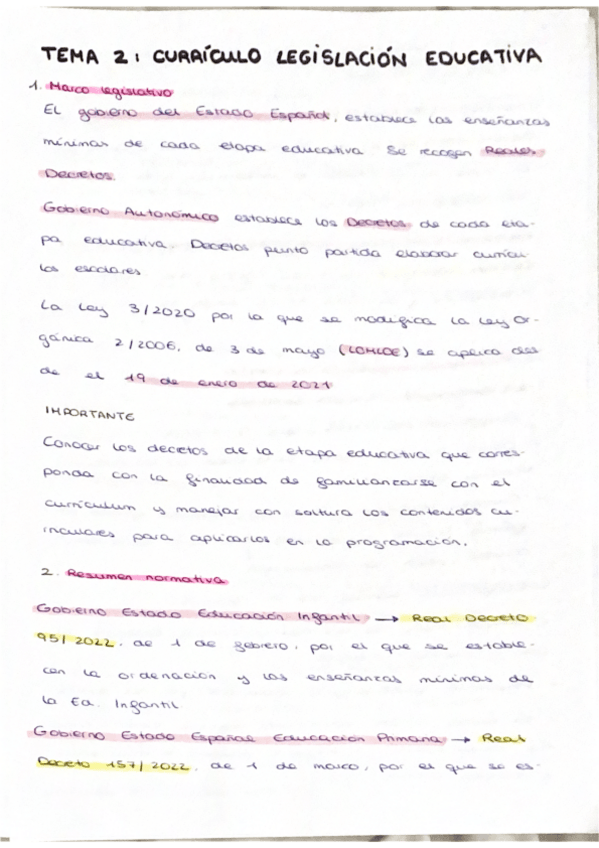 TEMA 2: CURRÍCULO LEGISLACIÓN EDUCATIVA
1. Marco legislativo
El gobierno del Estado Español, establece las enseñanzas
mínimas de cada etapa educativa. Se recogen Reales
Decretos.
Gobierno Autonómico establece los Decretos de cada eta-
pa educativa. Decretos punto partida elaborar currícu-
los escolares
La Ley 3/2020 por la que se modifica la Ley Or-
gánica 2/2006, de 3 de mayo (LOMLOE) se aplica des
de el 19 de enero de 2021
IMPORTANTE
Conocer los decretos de la etapa educativa que corres-
ponda con la finalidad de familiarizarse con el
currículum y manejar con soltura los contenidos cu-
rriculares para aplicarlos en la programación.
2. Resumen normativa
Gobierno Estado Educación Infantil → Real Decreto
95/2022, de 1 de febrero, por el que se estable-
cen la ordenación y las enseñanzas mínimas de
la Ed. Infantil
Gobierno Estado Español Educación Primaria → Real
Decreto 157/2022, de 1 de marzo, por el que se es-